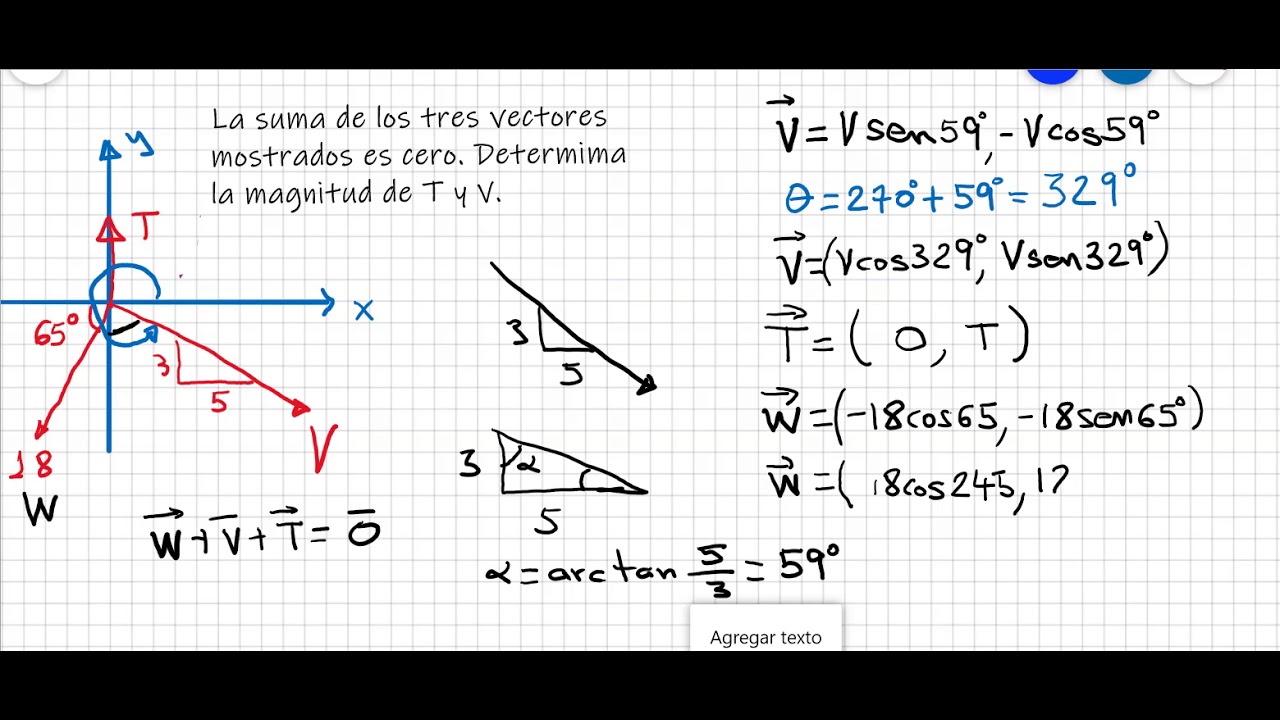 La suma de los tres vectores
mostrados es cero. Determima
la magnitud de T y V.
y
T
x
65°
3
5
18
V
W
W + V + T = 0
3
5
3
α
5
α = arctan 5/3 = 59°
V = Vsen59°, -Vcos59°
θ = 270° + 59° = 329°
V = (Vcos329°, Vsen329°)
T = ( 0, T )
W = (-18cos65, -18sen65°)
W = ( 18cos245, 1
Agregar texto